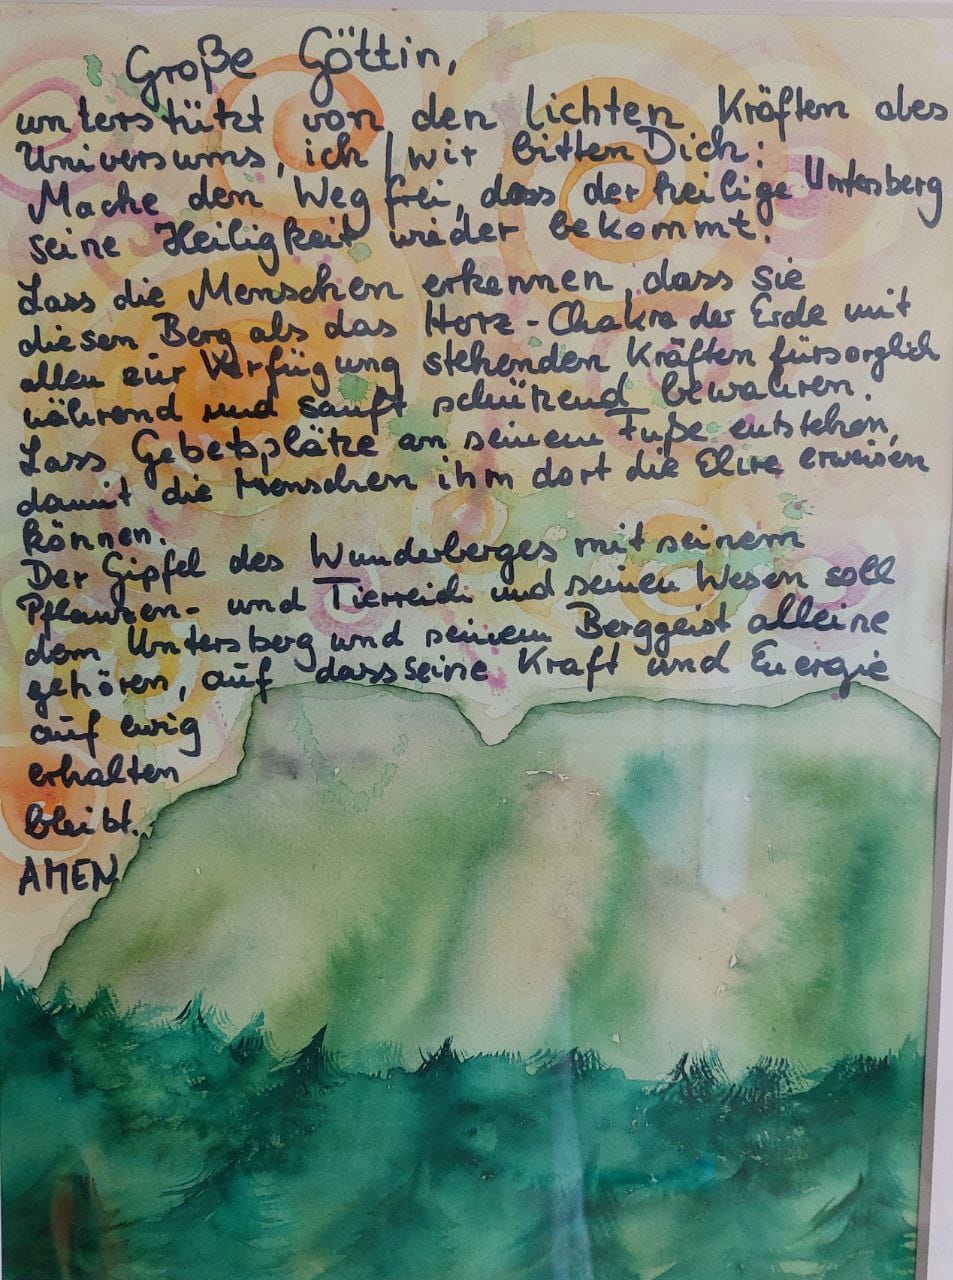 Große Göttin,
unterstützt von den lichten Kräften des
Universums, ich / wir bitten Dich:
Mache den Weg frei, dass der heilige Untersberg
seine Heiligkeit wieder bekommt.
Lass die Menschen erkennen, dass sie
diesen Berg als das Herz-Chakra der Erde mit
allen zur Verfügung stehenden Kräften fürsorglich
während und sanft schützend bewahren.
Lass Gebetsplätze an seinem Fuße entstehen,
damit die Menschen ihm dort die Ehre erweisen
können.
Der Gipfel des Wunderberges mit seinem
Pflanzen- und Tierreich und seinen Wesen soll
dem Untersberg und seinem Berggeist alleine
gehören, auf dass seine Kraft und Energie
auf ewig
erhalten
bleibt.
AMEN